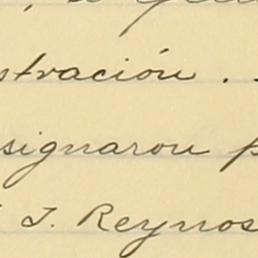 stración.
signaron p
J. Reynos